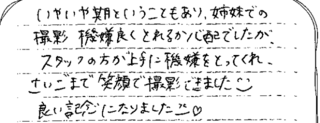 いやいや期ということもあり、姉妹での
撮影 機嫌良くとれるか心配でしたが、
スタッフの方が上手に機嫌をとってくれ、
さいごまで笑顔で撮影できました
良い記念になりました♡